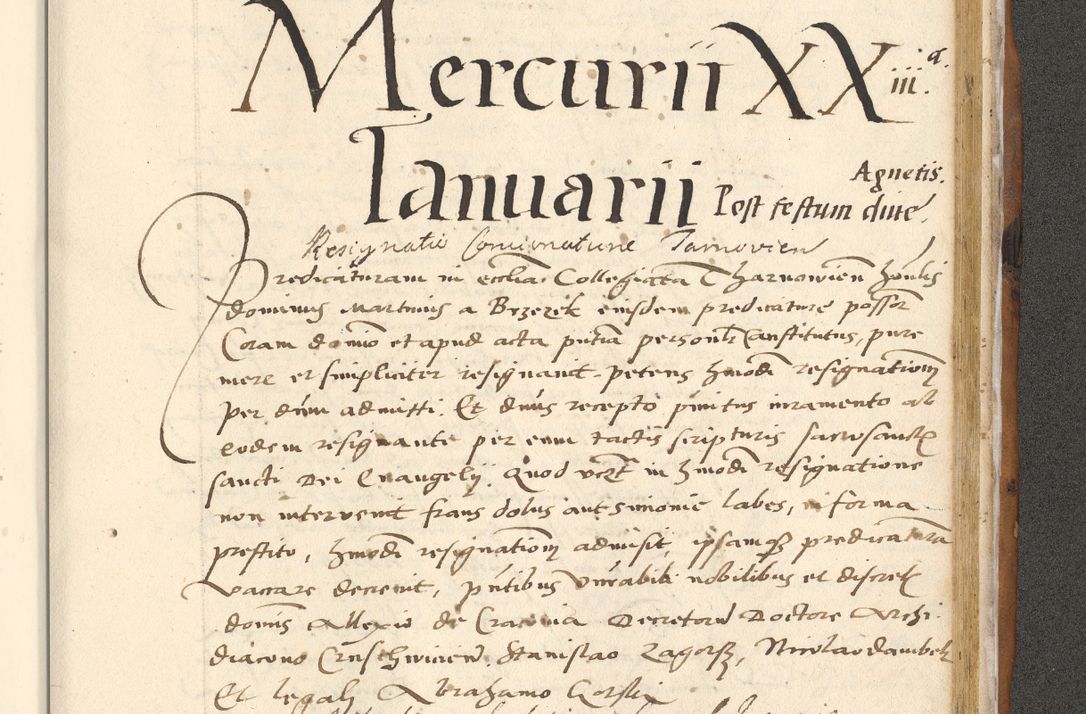 Mercurii XX iii a.
Ianuarii Post festum dive
Agnetis.
Resignatio Tarnovien
Predicaturam in ecclia Collegiata Tharnowien honlis
dominus Martinus a Brzezek eiusdem predicature possor
Coram domino et apud acta pntia personlr Constitutus, pure
mere et simpliciter resignavit petens hmodi resignationem
per dnm admitti. Et dnus recepto pnitus iuramento ab
eodem resignante per eum tactis scripturis sacrosanctis
sancti Dei Evangelij. Quod in hmodi resignatione
non intervenit fraus dolus aut simonie labes, in forma
prestito, hmodi resignationem admisit ipsamque predicaturam
vaccare decrevit, pntibus Vnrabili nobilibus et discret
dominis Allexio de Cracovia Decretorum Doctore Archi
diacono Stanislao Zagorsky, Nicolao dambsky
Et legali Abrahamo Gorski